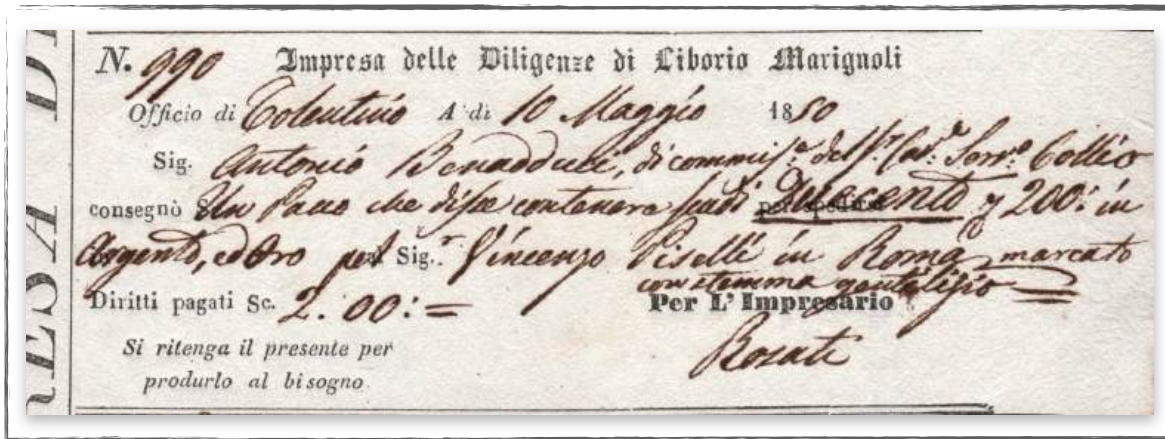 RESA D
N. 990 Impresa delle Diligenze di Liborio Marignoli
Officio di Tolentino A dì 10 Maggio 1850
Sig. Antonio Benadducci, di commis.e del Sr. Cav.e Collio
consegnò Un Pacco che disse contenere scudi Duecento 200: in
Argento, ed Oro pel Sig.r Vincenzo Piselli in Roma, marcato
con stemma gentilizio
Diritti pagati Sc. 2.00:= Per L'Impresario
Si ritenga il presente per Rosati
produrlo al bisogno